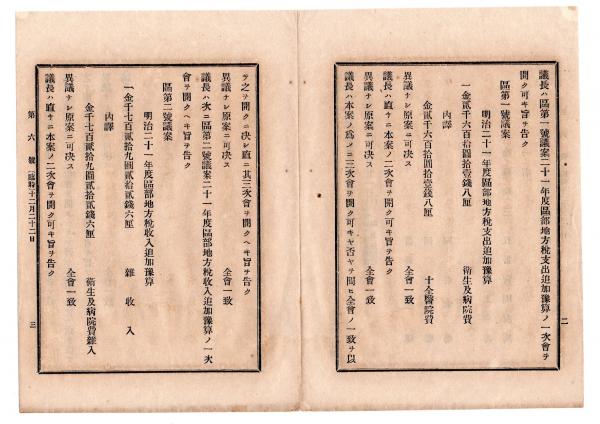 二
議長ハ區第一號議案二十一年度區部地方税支出追加豫算ノ一次會ヲ
開ク可キ旨ヲ告ク
區第一號議案
明治二十一年度區部地方税支出追加豫算
一金貳千六百拾圓拾壹錢八厘 衛生及病院費
内譯
金貳千六百拾圓拾壹錢八厘 十全醫院費
異議ナシ原案ニ可决ス 全會一致
議長ハ直チニ本案ノ二次會ヲ開ク可キ旨ヲ告ク
異議ナシ原案ニ可决ス 全會一致
議長ハ本案ノ爲メニ三次會ヲ開ク可キヤ否ヤヲ問ヒ全會ノ一致ヲ以
テ之ヲ開クニ决シ直ニ其三次會ヲ開クヘキ旨ヲ告ク
異議ナシ原案ニ可决ス 全會一致
議長ハ次ニ區第二號議案二十一年度區部地方税收入追加豫算ノ一次
會ヲ開クヘキ旨ヲ告ク
區第二號議案
明治二十一年度區部地方税收入追加豫算
一金千七百貳拾九圓貳拾貳錢六厘 雜收入
内譯
金千七百貳拾九圓貳拾貳錢六厘 衛生及病院費雜入
異議ナシ原案ニ可决ス 全會一致
議長ハ直チニ本案ノ二次會ヲ開ク可キ旨ヲ告ク
第六號(臨時十二月二十二日 三